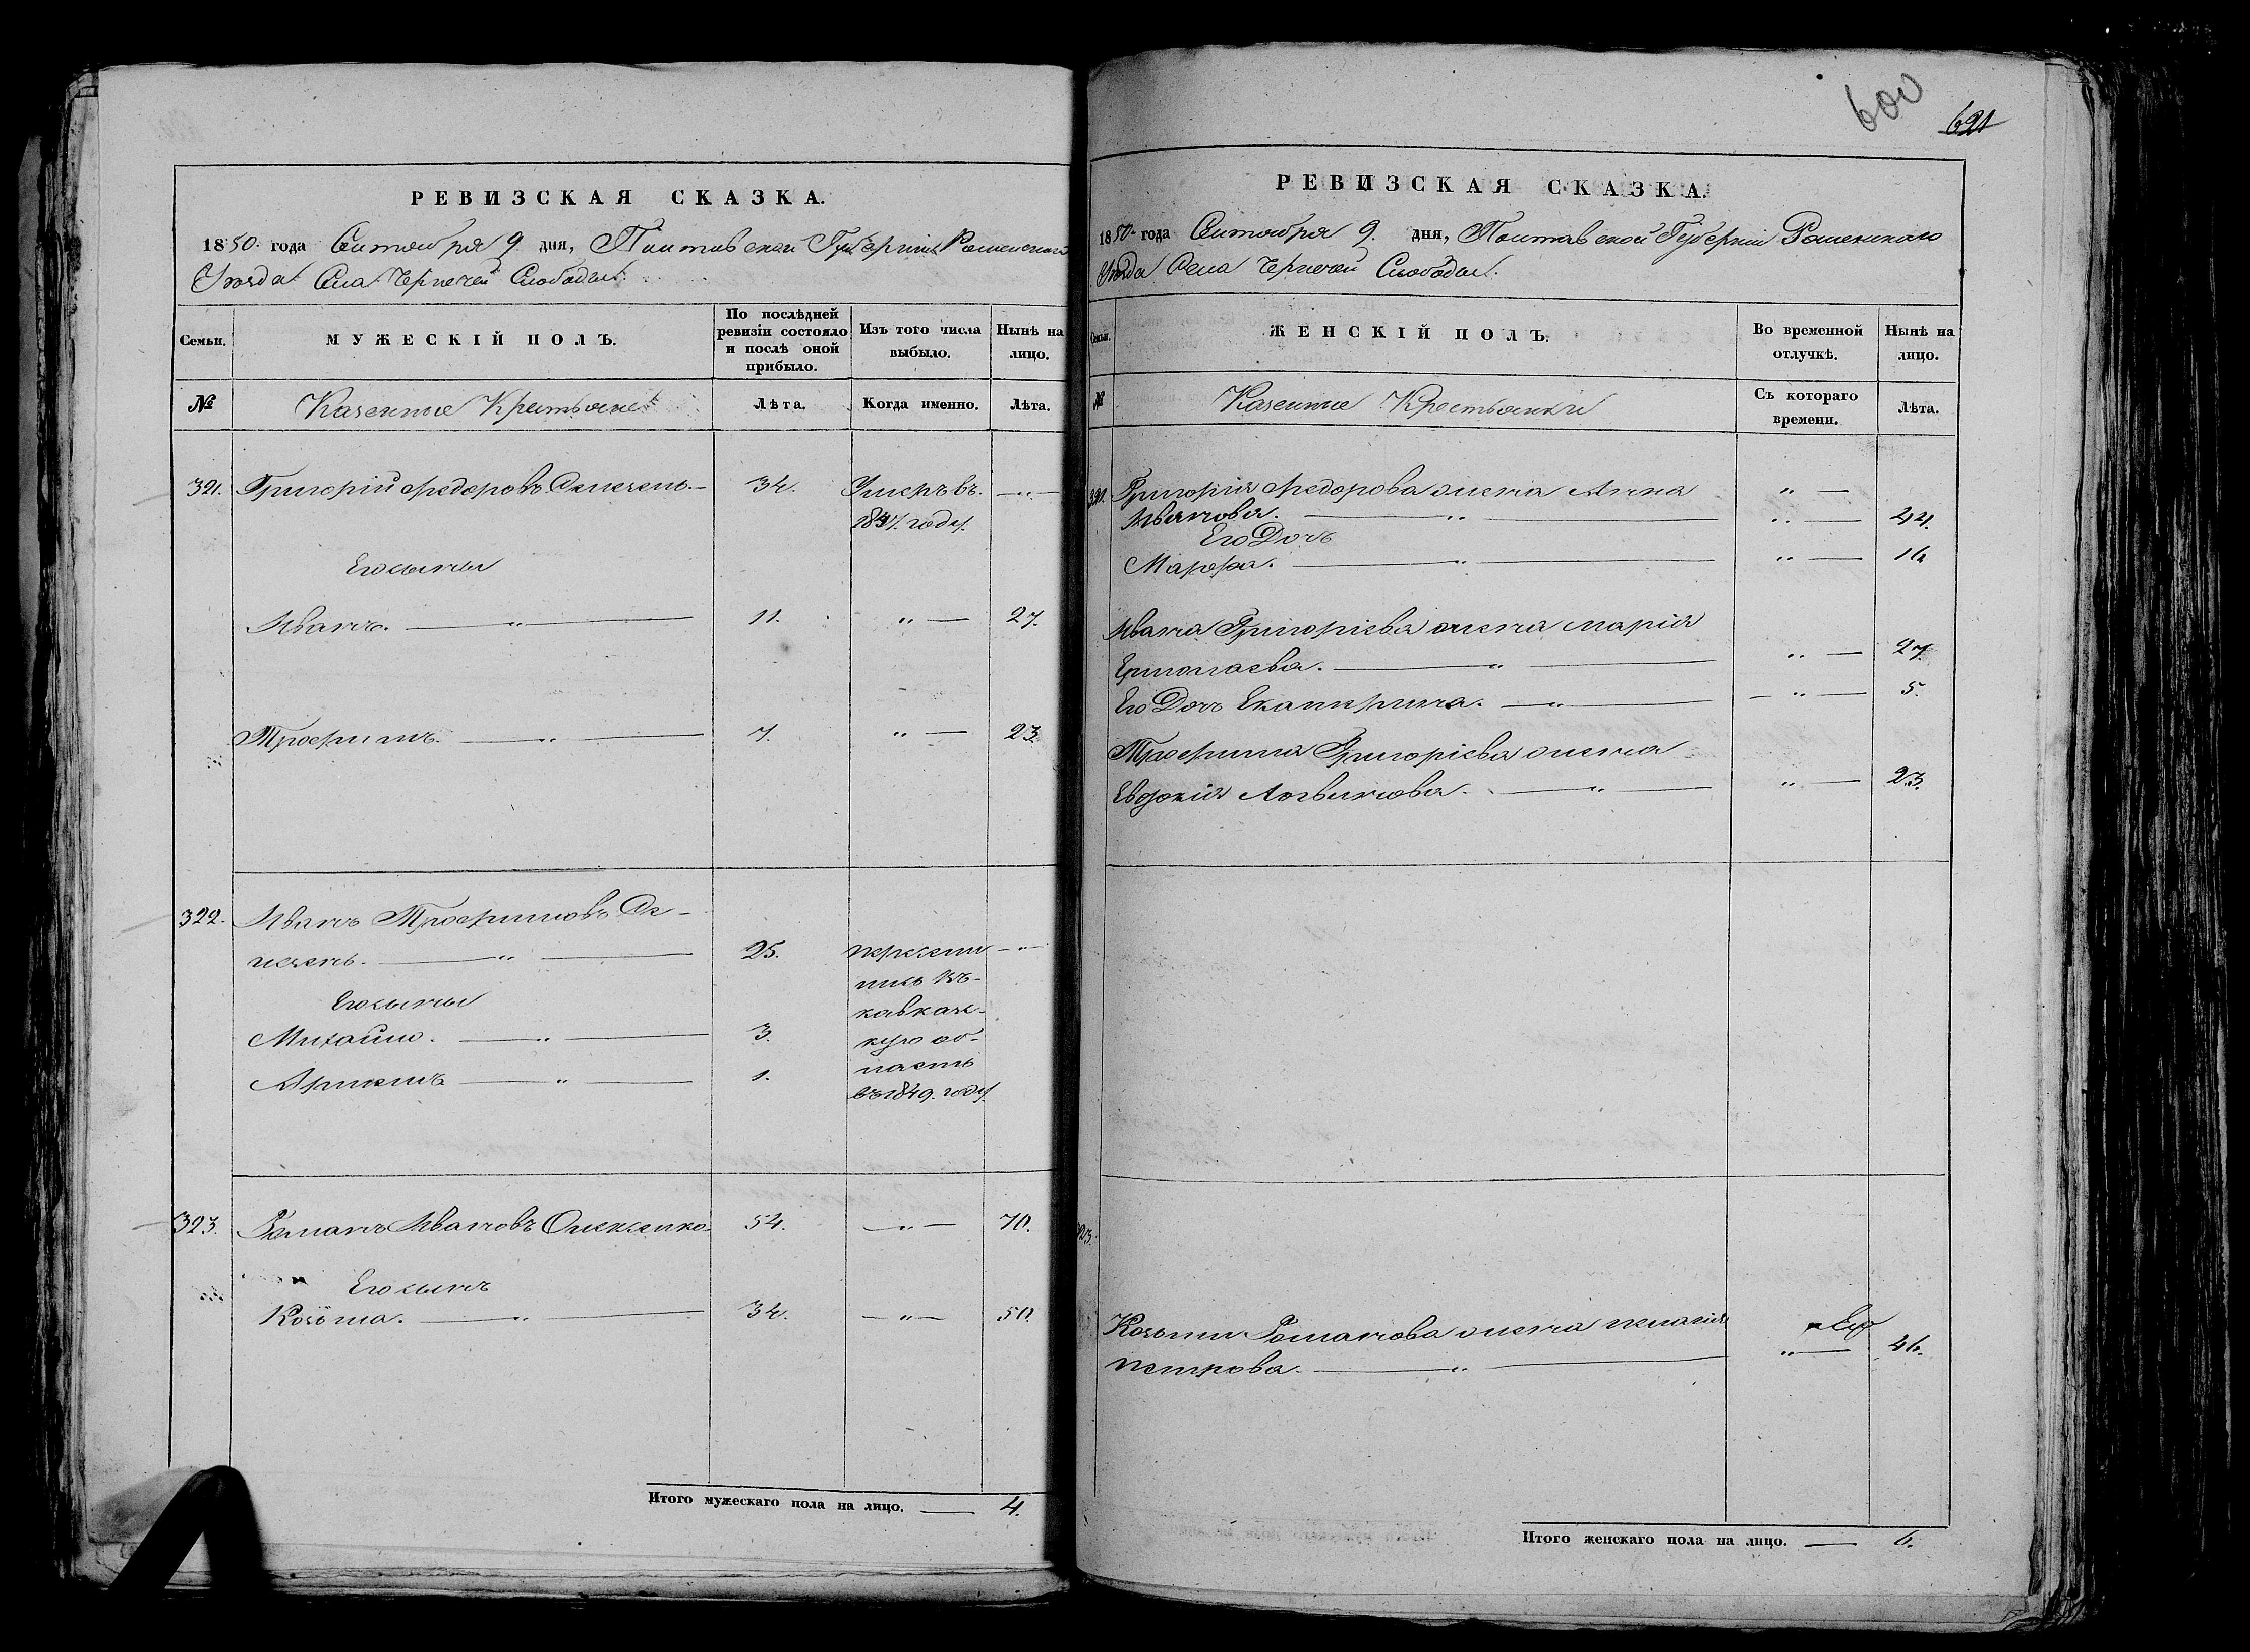 600
691
РЕВИЗСКАЯ СКАЗКА.
1850 года Сентября 9 дня, Полтавской Губерніи Роменскаго
Уѣзда Села Чернечей Слободы.
Семьи.
МУЖЕСКІЙ ПОЛЪ.
По послѣдней ревизіи состояло и послѣ оной прибыло.
Изъ того числа выбыло.
Нынѣ на лицо.
№
Казенные Крестьяне
Лѣта.
Когда именно.
Лѣта.
321. Григорій Федоровъ 34. Умеръ въ — „ —
1847. году.
Его сыны
Иванъ. — „ — 11. „ — 27.
Трофимъ. — „ — 7. „ — 23.
322. Иванъ Трофимовъ
— „ — 25. пересели — „ —
лись въ-
Его сыны
кавказс-
Михайло. — „ — 3. кую об-
ласть
— „ — 1.
въ 1849. году.
323. Романъ Ивановъ Олексенко 54. — „ — 70.
Его сынъ
Козьма. — „ — 34. — „ — 50.
Итого мужескаго пола на лицо. — 4.
РЕВИЗСКАЯ СКАЗКА.
1850 года Сентября 9. дня, Полтавской Губерніи Роменскаго
Уѣзда Села Чернечей Слободы.
Семьи.
ЖЕНСКІЙ ПОЛЪ.
Во временной отлучкѣ.
Нынѣ на лицо.
№
Казенные Крестьянки
Съ котораго времени.
Лѣта.
321. Григорія Федорова жена Анна „ —
Иванова. — „ — „ — 44.
Его Дочь
Марфа. — „ — „ — 16.
Ивана Григоріева жена Марія
Ермолаева. — „ — „ — 27.
Его Дочь Екатерина. — „ — — „ — 5.
Трофима Григоріева жена
Евдокія Логвинова. — „ — „ — 23.
323.
Козьмы Романова жена Пелагія
Петрова. — „ — „ — 46.
Итого женскаго пола на лицо. — 6.